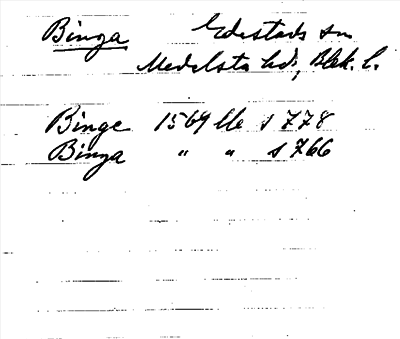 Binga Edestads sn
Medelsta hd, Blek. l.
Binge 1569 lle s 778
Binga " " s 766